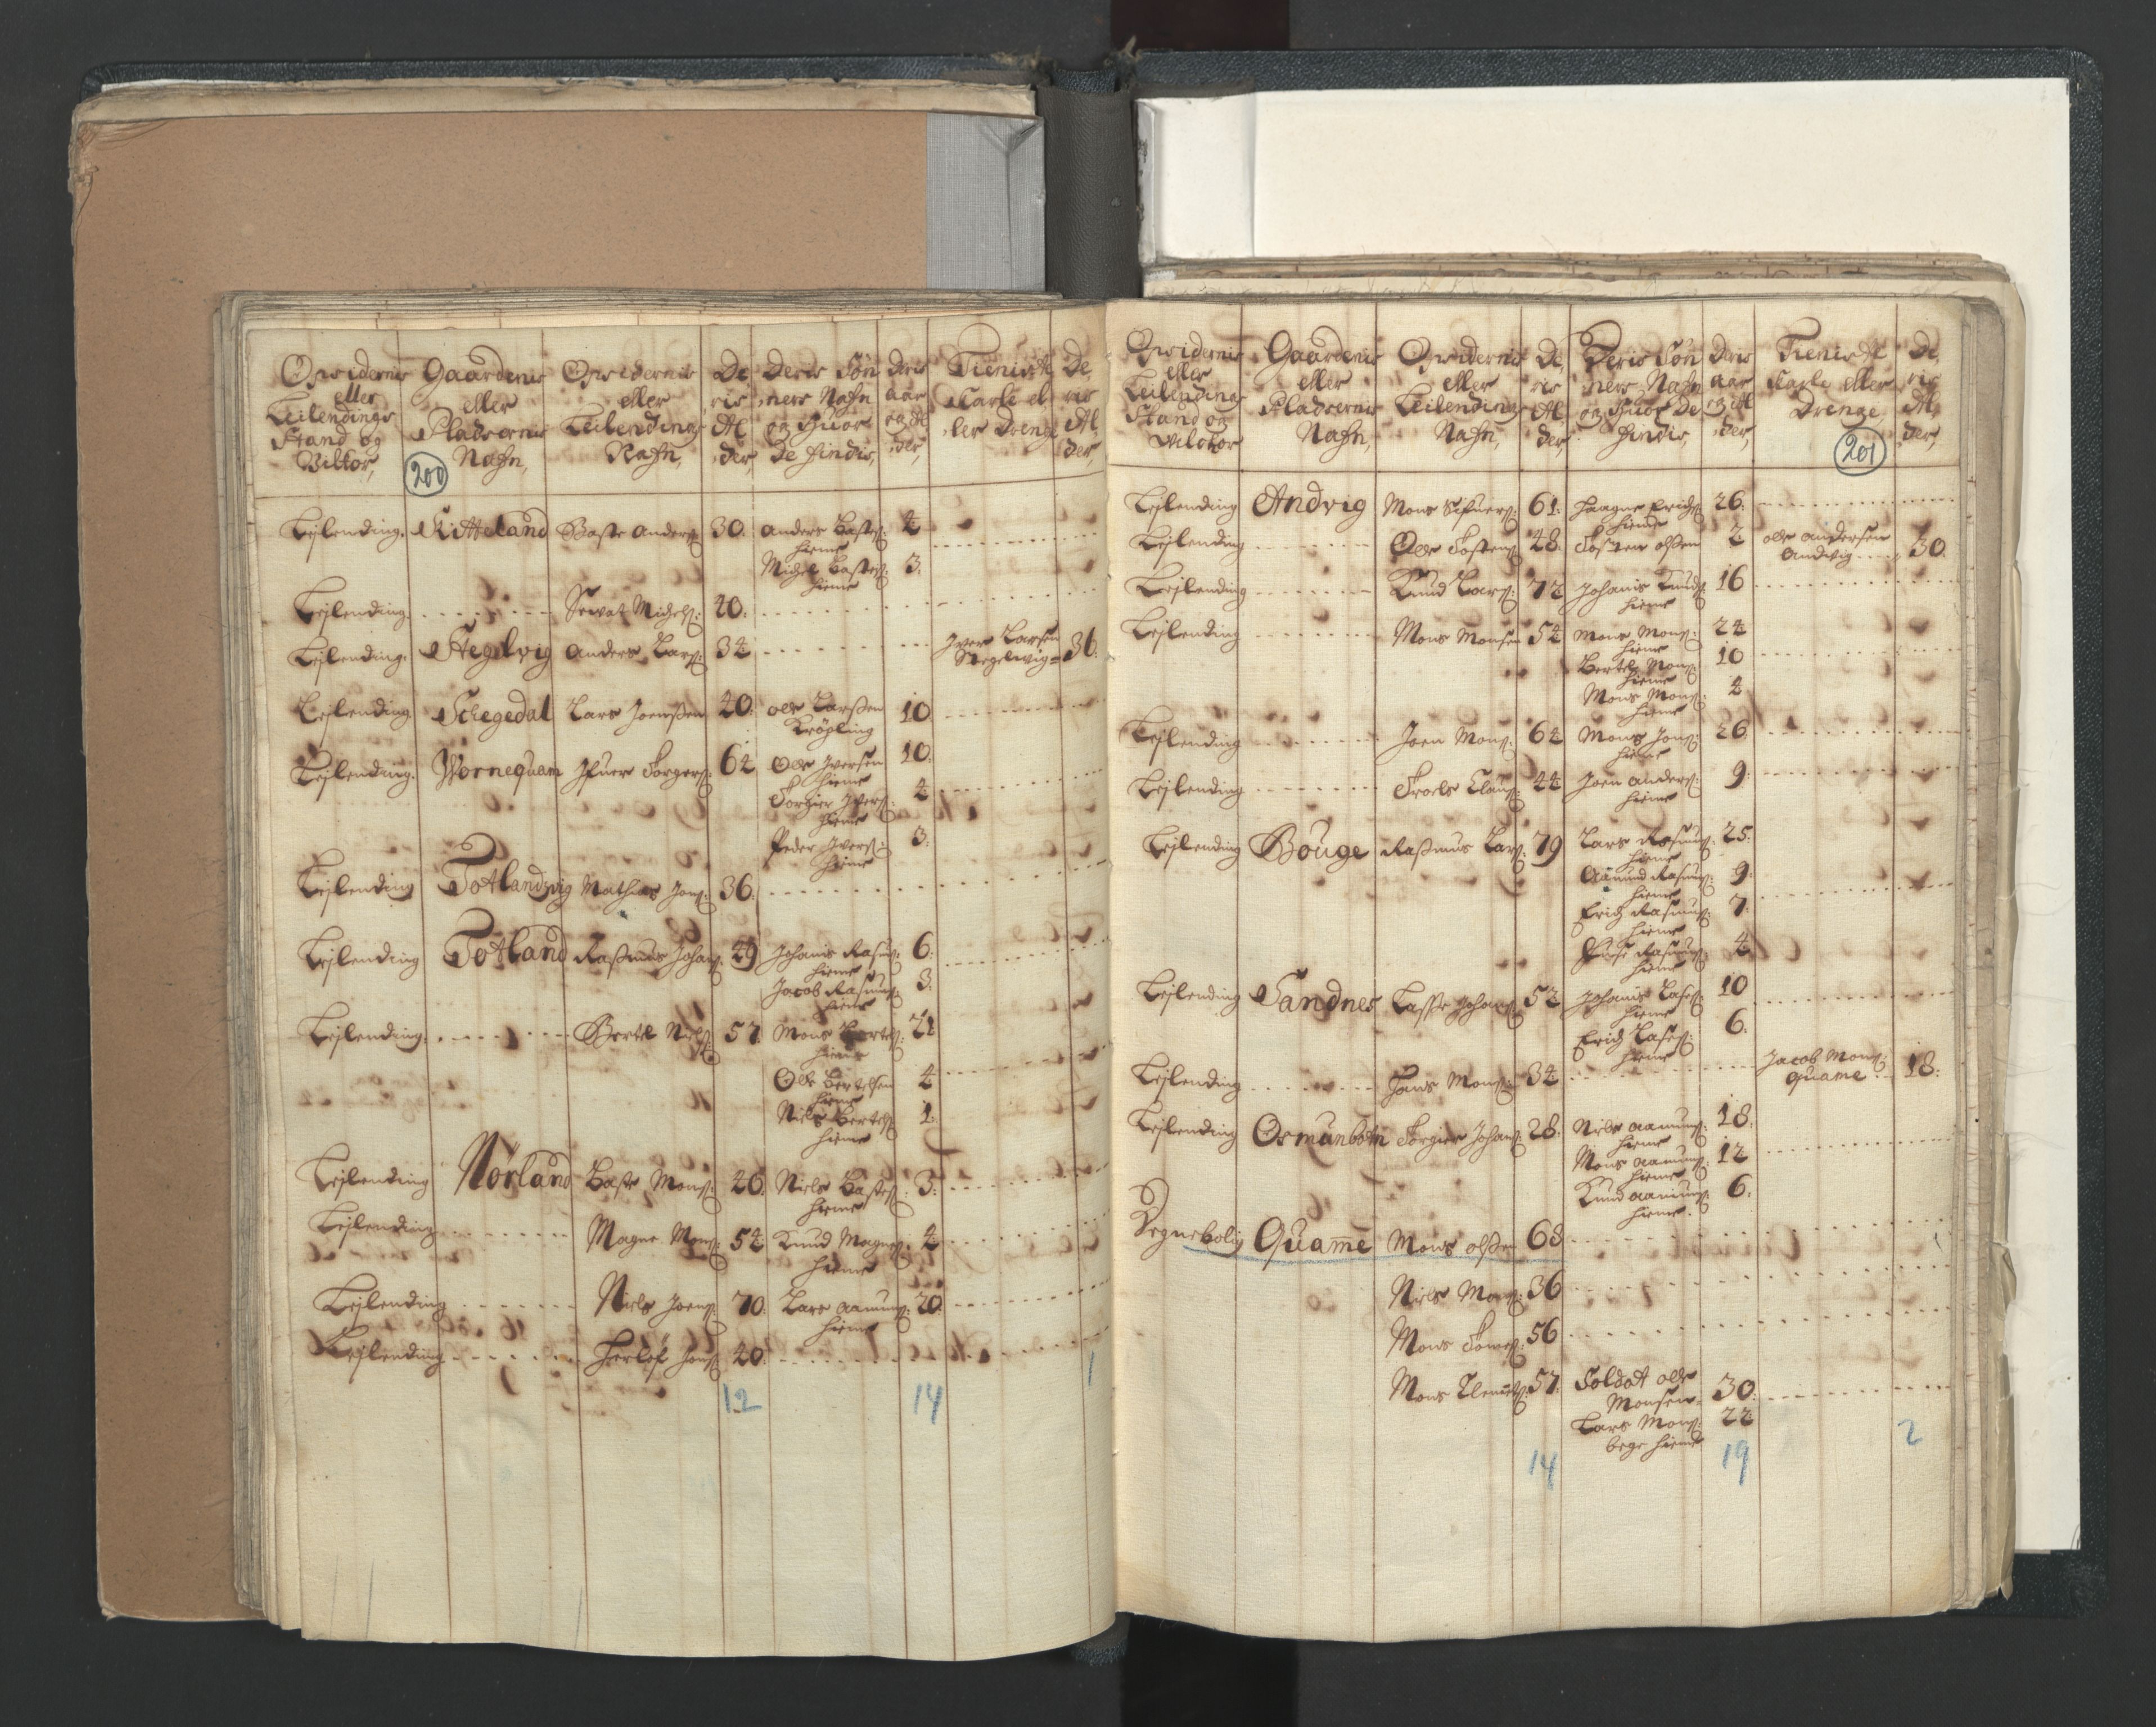 Opsidernis eller Leilendings Stand og Vilkor,
Gaardenis eller Pladsernis Nafn,
Opsidernis eller Leilendings Nafn,
De ris Al der,
Deris Søn ners Nafn og Huor De findis,
Deris aar og Al der,
Tieniste Karle el ler Drenge
De ris Al der,
200
Lejlending. Kitteland Baste Anders: 30. Anders Bastes: 4
hieme
Michel Bastes: 3.
hieme
Lejlending. Michels: 40.
Lejlending. Stegelvig Anders Lars: 34 Iver Larsen 36.
Stegelwig
Lejlending Schegedal Lars Joenßen 40. Olle Larßen 10
Krøpling
Lejlending. Wornequam Ifuer Torgers: 64 Olle Iversen 10.
hieme
Torgier Ivers: 4
hieme
Peder Ivers: 3.
hieme
Lejlending Totlandzvig Mathias Jons: 36.
Lejlending Totland Raßmus Johans: 49 Johanis Rasm: 6.
hieme
Jacob Rasmus: 3.
hieme
Lejlending. Bertel Niels: 57. Mons Bertels: 21
hieme
Olle Bertelsen 4
hieme
Niels Bertels: 1.
hieme
Lejlending Nørland Baste Mons: 46. Niels Bastes: 3.
hieme
Lejlending Magne Mons: 54 Knud Magnes: 4
hieme
Lejlending Niels Joens: 70. Lars Aamuns: 20.
hieme
Lejlending Herlof Jons: 40.
12 14 1
Opsidernis eller Leilendings Stand og Wilckor
Gaardenis eller Pladsernis Nafn,
Opsidernis eller Leilendings Nafn,
De ris Al der,
Deris Søn ners Nafn og Huor De findis,
Deris aar og Al der,
Tieniste Karle eller Drenge,
De ris Al der,
201
Lejlending Andvig Mons Sifuers: 61. Haagne Erichs: 26.
hieme
Lejlending Olle Tostens: 48. Tosten Olßen 2 Olle Andersen
Andvig 30.
Lejlending Knud Lars: 72 Johanis Knuds: 16
hieme
Lejlending Mons Monsen 54 Mons Mons: 24
hieme
Bertel Mons: 10
hieme
Mons Mons: 4
hieme
Lejlending Joen Mons: 64 Mons Jons: 26
hieme
Lejlending Troels Claus: 44 Joen Anders: 9.
hieme
Lejlending Bouge Raßmus Lars: 79 Lars Rasmus: 25.
hieme
Aamund Rasmus: 9.
hieme
Erich Rasmus: 7.
hieme
Rasmus: 4
hieme
Lejlending Sandnes Lasse Johans: 52 Johanis Lases: 10
hieme
Erich Lases: 6.
hieme
Lejlending Hans Mons: 34 Jacob Mons: 18.
Quame
Lejlending Osmunbotn Torgier Johans: 28. Niels Aamuns: 18.
hieme
Mons Aamuns: 12
hieme
Knud Aamuns: 6.
hieme.
Degnebolig Quame Mons Olßen 68
Niels Mons: 36
Mons 56
Mons Clemets: 57. Soldat Olle
Monsen 30.
Lars Mons: 22
bege hieme
14 19 2